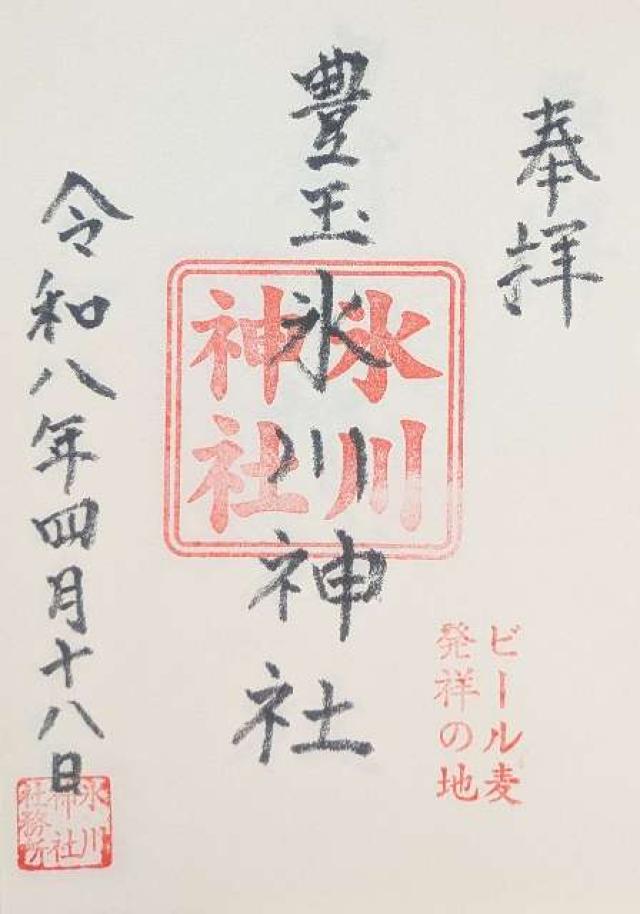 奉拝
豊玉氷川神社
氷川
神社
ビール麦
発祥の地
令和八年四月十八日
氷川
神社
社務所